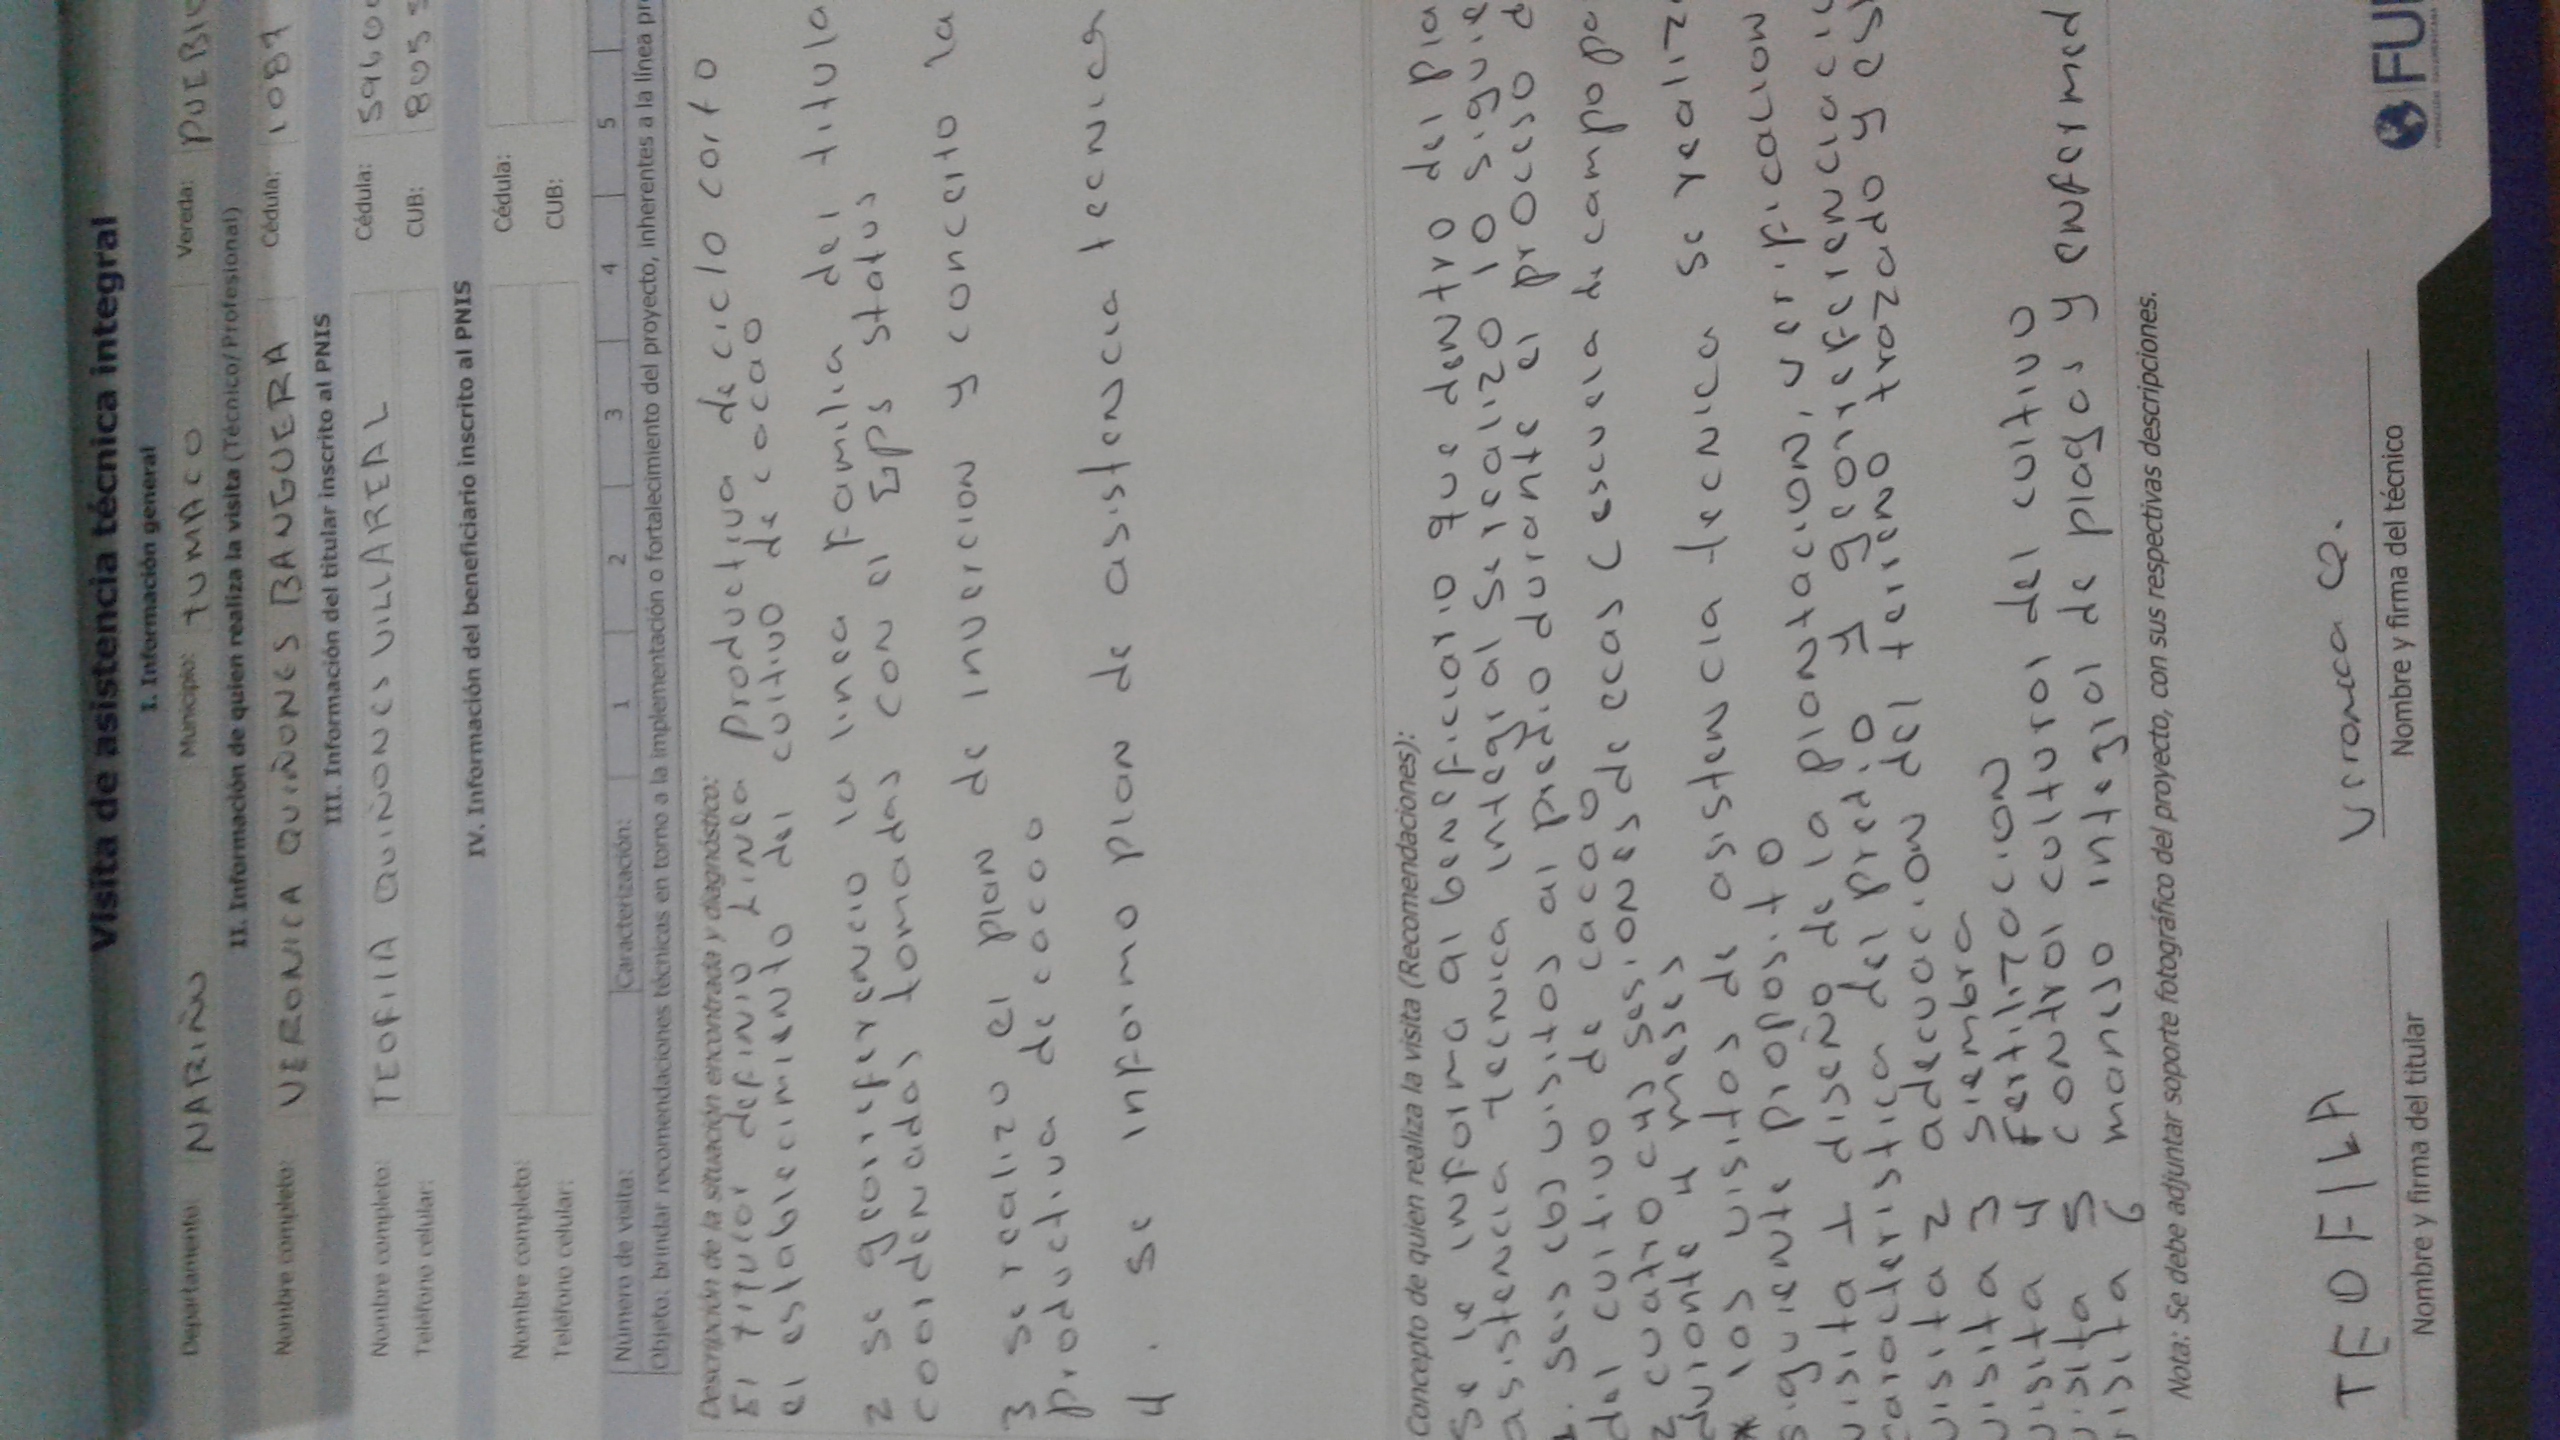 Visita de asistencia técnica integral
I. Información general
Departamento: NARIÑO Municipio: TUMACO Vereda: PUEBLO
II. Información de quien realiza la visita (Técnico/ Profesional)
Nombre completo: VERONICA QUIÑONES BANGUERA Cédula: 1087
III. Información del titular inscrito al PNIS
Nombre completo: TEOFILA QUIÑONES VILLAREAL Cédula: 5960
Teléfono celular: CUB: 805
IV. Información del beneficiario inscrito al PNIS
Nombre completo: Cédula:
Teléfono celular: CUB:
Número de visita: Caracterización: 1 2 3 4 5
Objeto: brindar recomendaciones técnicas en torno a la implementación o fortalecimiento del proyecto, inherentes a la línea pr
Descripción de la situación encontrada y diagnóstico:
El titular definio Linea productiva de ciclo corto
el establecimiento del cultivo de cacao
2 se georeferencio la linea familia del titula
coordenadas tomadas con el Eps status
3 se realizo el plan de invercion y concerto la
productiva de cacao
4. se informo plan de asistencia tecnica
Concepto de quien realiza la visita (Recomendaciones):
Se le informa al beneficiario que dentro del pla
asistencia tecnica integral se realizo lo siguie
1. seis (6) visitas al predio durante el proceso d
del cultivo de cacao
2 cuatro (4) sesiones de ecas (escuela de campo pa
durante 4 meses
* las visitas de asistencia tecnica se realiz
siguiente proposito
visita 1 diseño de la plantacion, verificacion
caracteristica del predio y georeferenciaci
visita 2 adecuacion del terreno trazado y es
visita 3 siembra
visita 4 fertilizacion
visita 5 control cultural del cultivo
visita 6 manejo integral de plagas y enfermed
Nota: Se debe adjuntar soporte fotográfico del proyecto, con sus respectivas descripciones.
TEOFILA Veronica Q.
Nombre y firma del titular Nombre y firma del técnico
FU